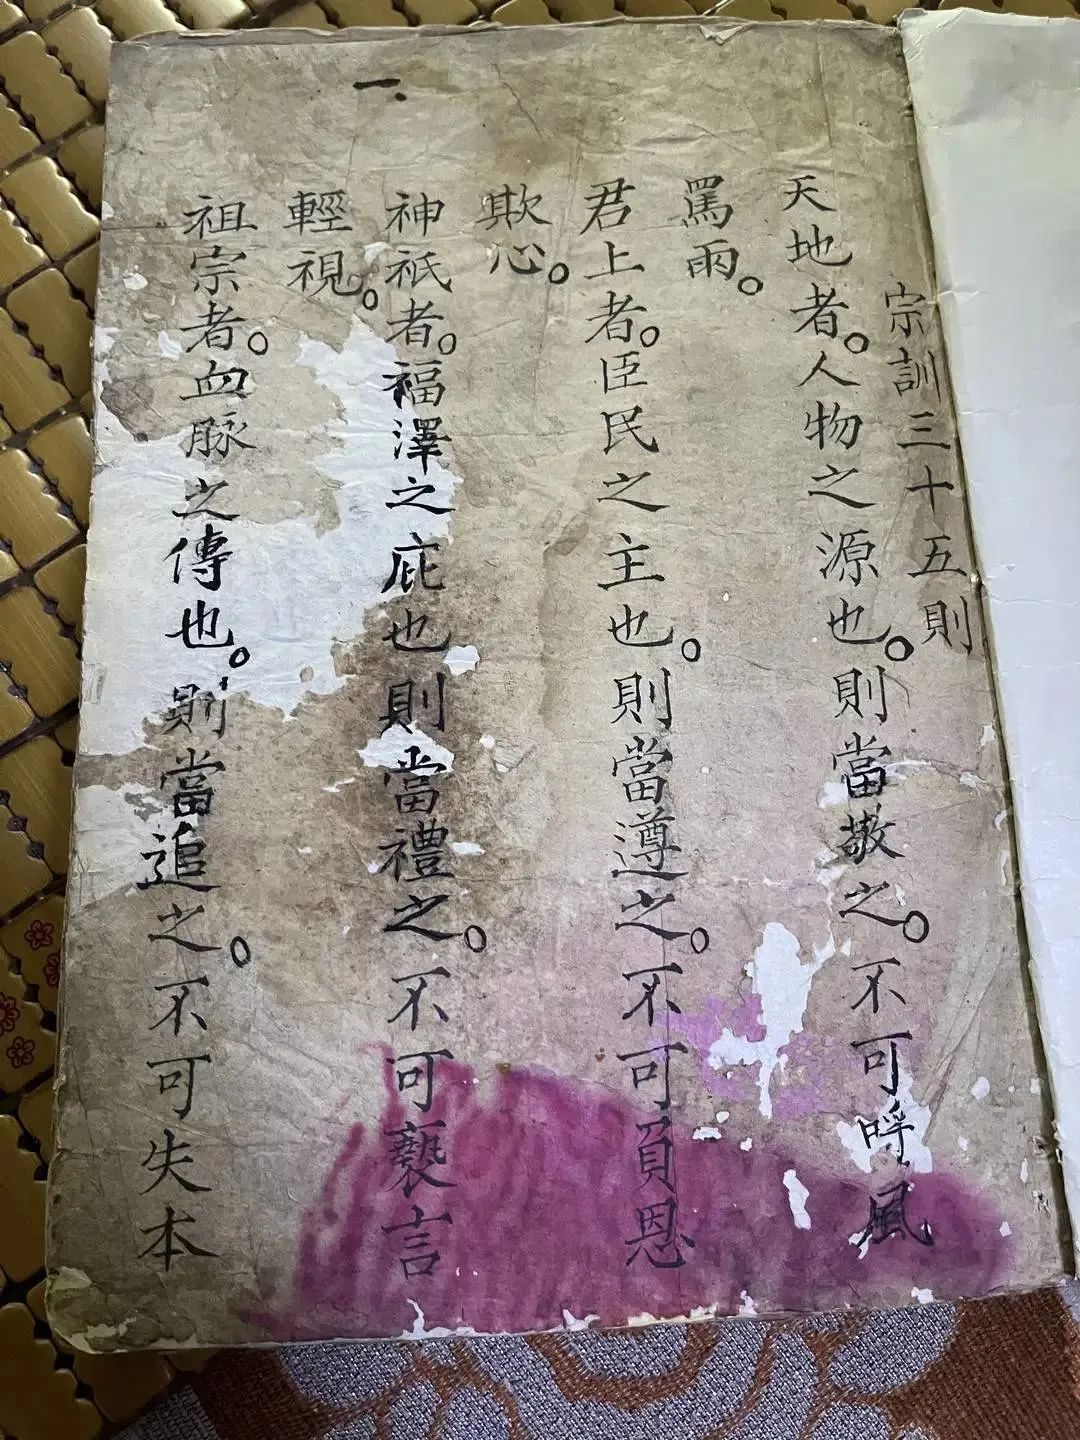 宗訓三十五則
天地者。人物之源也。則當敬之。不可呼風
罵雨。
君上者。臣民之主也。則當遵之。不可負恩
欺心。
神祇者。福澤之庇也則當禮之。不可褻言
輕視。
祖宗者。血脉之傳也。則當追之。不可失本
一、